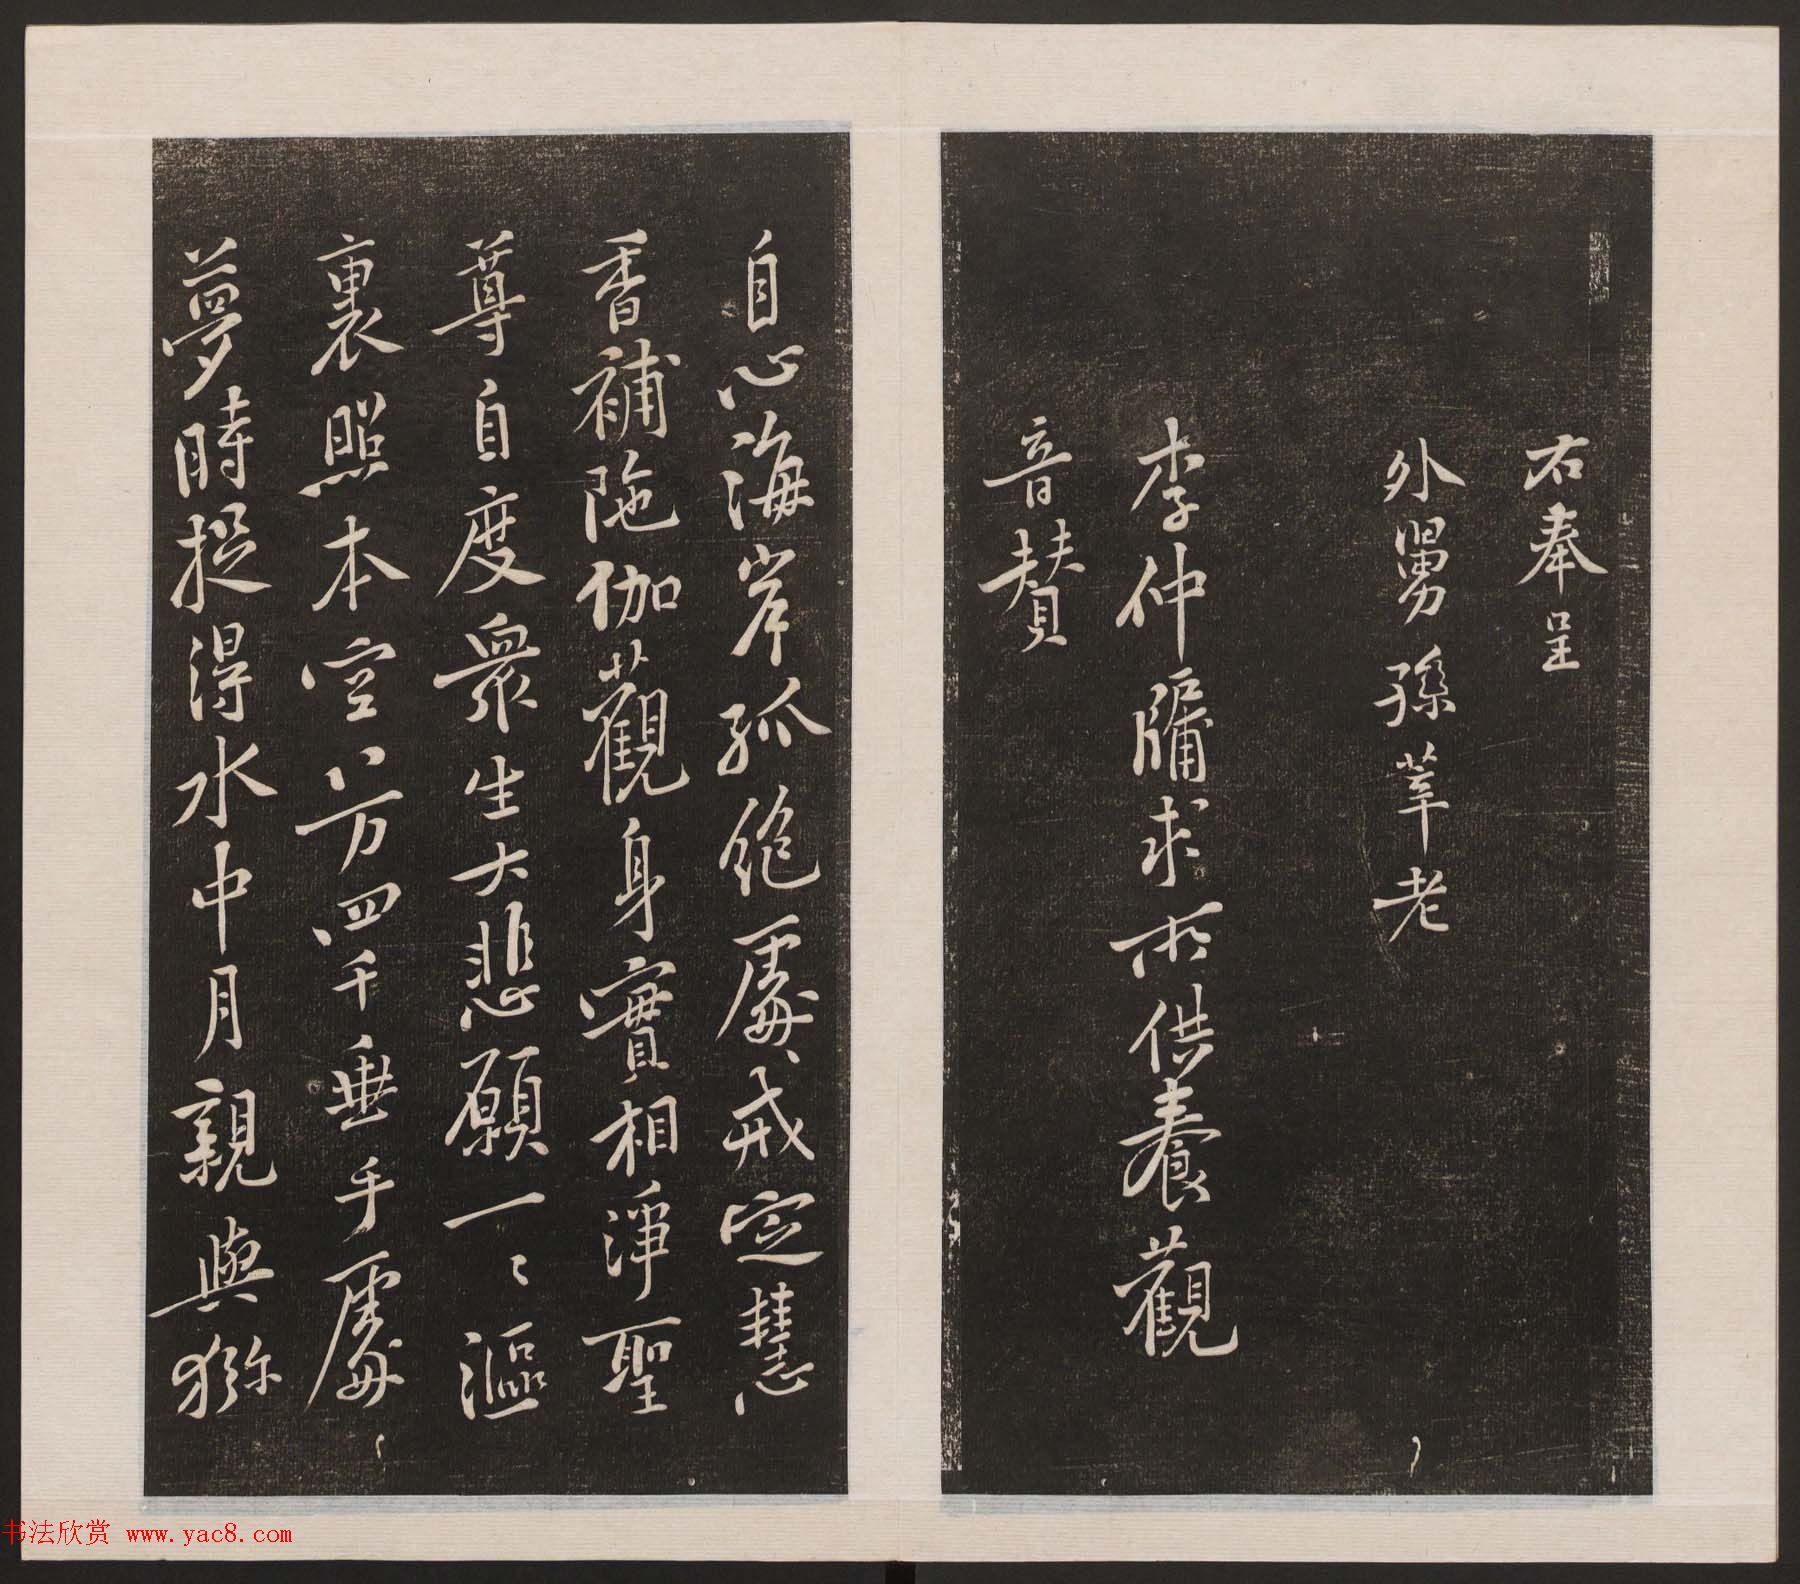 右奉呈
外舅孫莘老
李仲牖求所供養觀
音賛
自心海岸孤絶處戒定慧
香補陁伽觀身實相淨聖
尊自度衆生大悲願一〻漚
裏照本空八万四千垂手處
夢時捉得水中月親與猕
书法欣赏 www.yac8.com